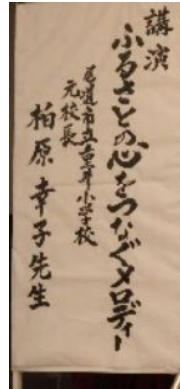 講演
ふるさとの心をつなぐメロディー
尾道市立重井小学校
元校長
柏原幸子先生